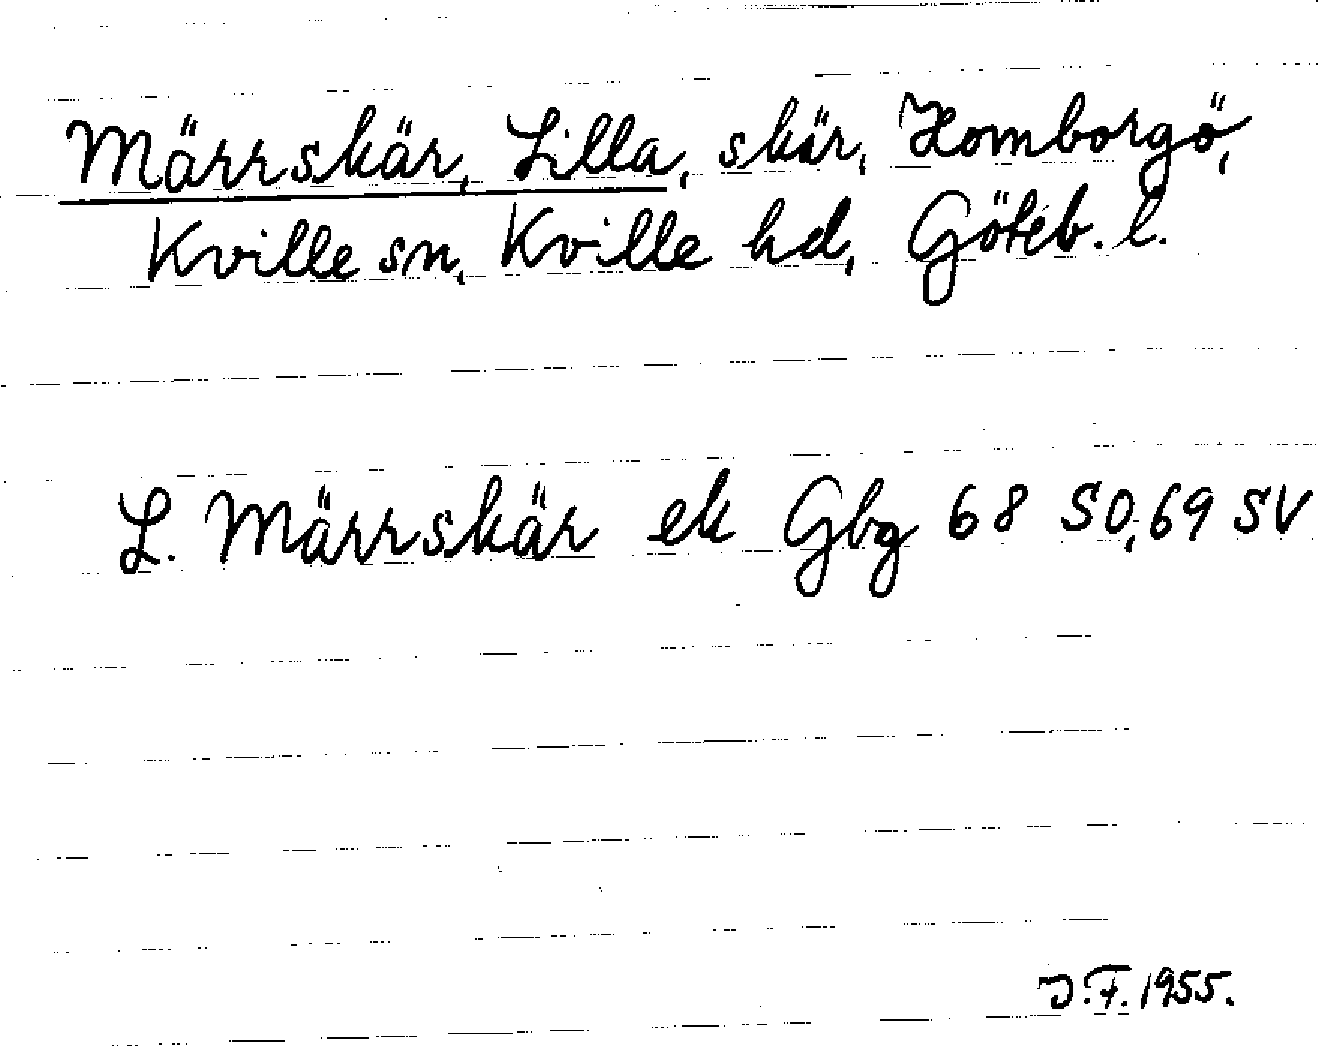 Märrskär, Lilla, skär, Homborgö,
Kville sn, Kville hd, Göteb. l.
L. Märrskär ek Gbg 68 SO, 69 SV
J.F. 1955.